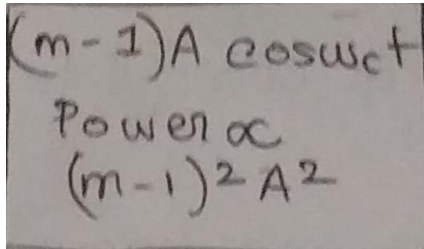 (m-1)A cosωct
Power ∝
(m-1)²A²